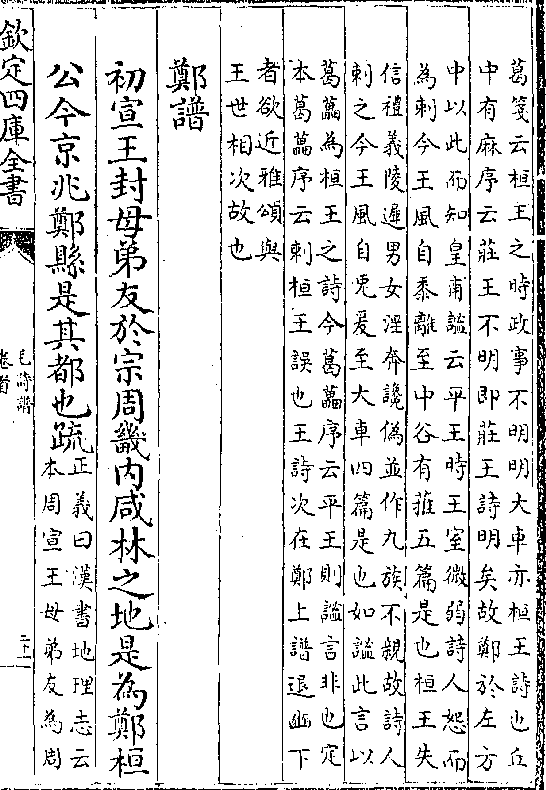 葛箋云桓王之時政事不明明大車亦桓王詩也丘
中有麻序云莊王不明即莊王詩明矣故鄭於左方
中以此而知皇甫謐云平王時王室微弱詩人怨而
為刺今王風自黍離至中谷有蓷五篇是也桓王失
信禮義陵遲男女淫奔讒偽並作九族不親故詩人
刺之今王風自兎爰至大車四篇是也如謐此言以
葛藟為桓王之詩今葛藟序云平王則謐言非也定
本葛藟序云刺桓王誤也王詩次在鄭上譜退豳下
者欲近雅頌與
王世相次故也
鄭譜
初宣王封母弟友於宗周畿内咸林之地是為鄭桓
公今京兆鄭縣是其都也疏
正義曰漢書地理志云
本周宣王母弟友為周
欽定四庫全書
毛詩譜
卷首
二十一